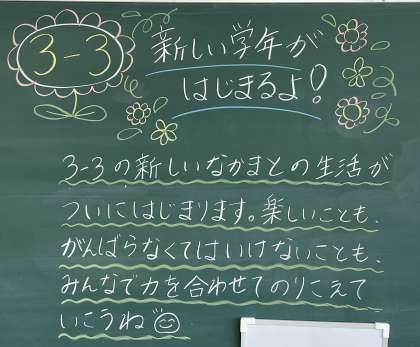 3-3
新しい学年が
はじまるよ!
3-3の新しいなかまとの生活が
ついにはじまります。楽しいことも、
がんばらなくてはいけないことも、
みんなで力を合わせてのりこえて
いこうね